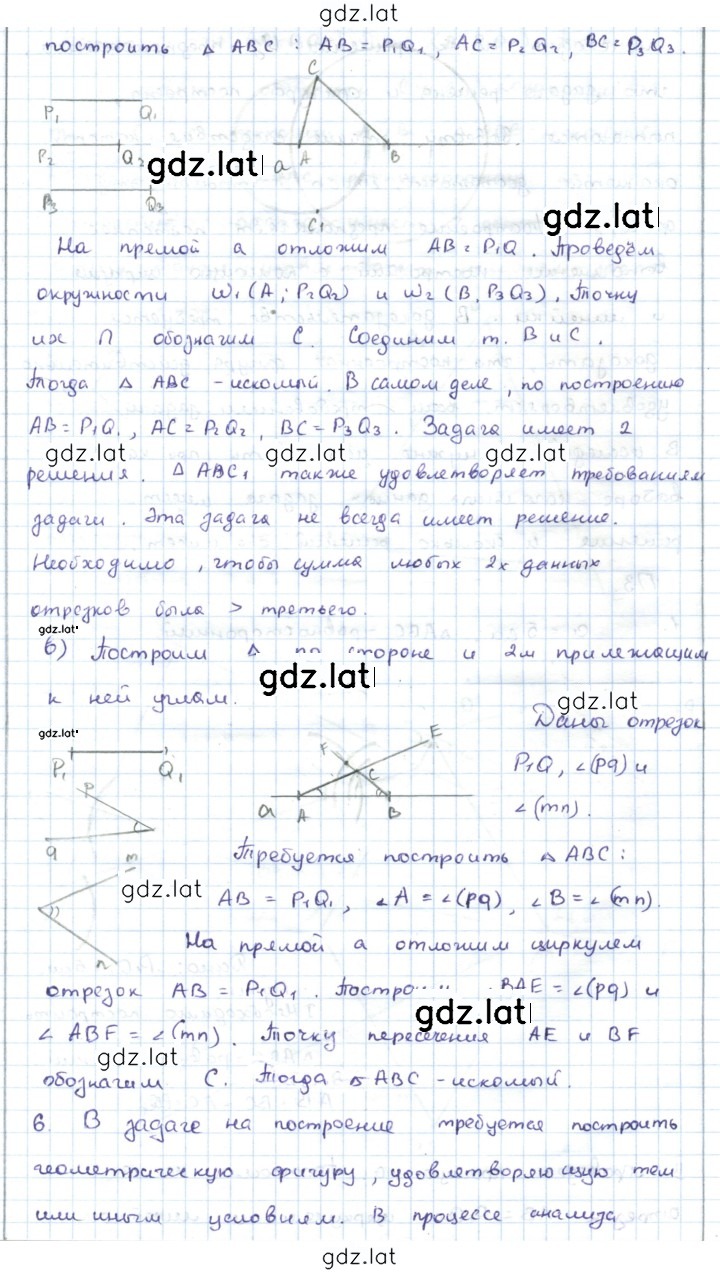 gdz.lat
построить △ ABC : AB = P₁Q₁, AC = P₂Q₂, BC = P₃Q₃.
C
P₁ Q₁
P₂ Q₂ gdz.lat a A B
P₃ Q₃
C₁ gdz.lat
На премой a отложим AB = P₁Q. Проведём
окружности ω₁(A; P₂Q₂) и ω₂(B, P₃Q₃). Точку
их ∩ обозначим C. Соединим т. B и C.
Тогда △ ABC - искомый. В самом деле, по построению
AB = P₁Q₁, AC = P₂Q₂, BC = P₃Q₃. Задача имеет 2
gdz.lat gdz.lat gdz.lat
решения. △ ABC₁ также удовлетворяет требованиям
задачи. Эта задача не всегда имеет решение.
Необходимо, чтобы сумма любых 2х данных
отрезков была > третьего.
gdz.lat
б) Построим △ по стороне и 2м прилежащим
gdz.lat
к ней углам.
gdz.lat
gdz.lat
Даны отрезок
P₁ Q₁ F E C a A B
P₁Q, ∠(pq) и
p q
∠(mn).
m n
Требуется построить △ ABC:
gdz.lat
AB = P₁Q₁, ∠A = ∠(pq), ∠B = ∠(mn).
На прямой a отложим циркулем
отрезок AB = P₁Q₁. Постро BAE = ∠(pq) и
gdz.lat
∠ ABF = ∠(mn). Точку пересечения AE и BF
gdz.lat
обозначим C. Тогда △ ABC - искомый.
6. В задаче на построение требуется построить
геометрическую фигуру, удовлетворяющую тем
или иным условиям. В процессе анализа
gdz.lat